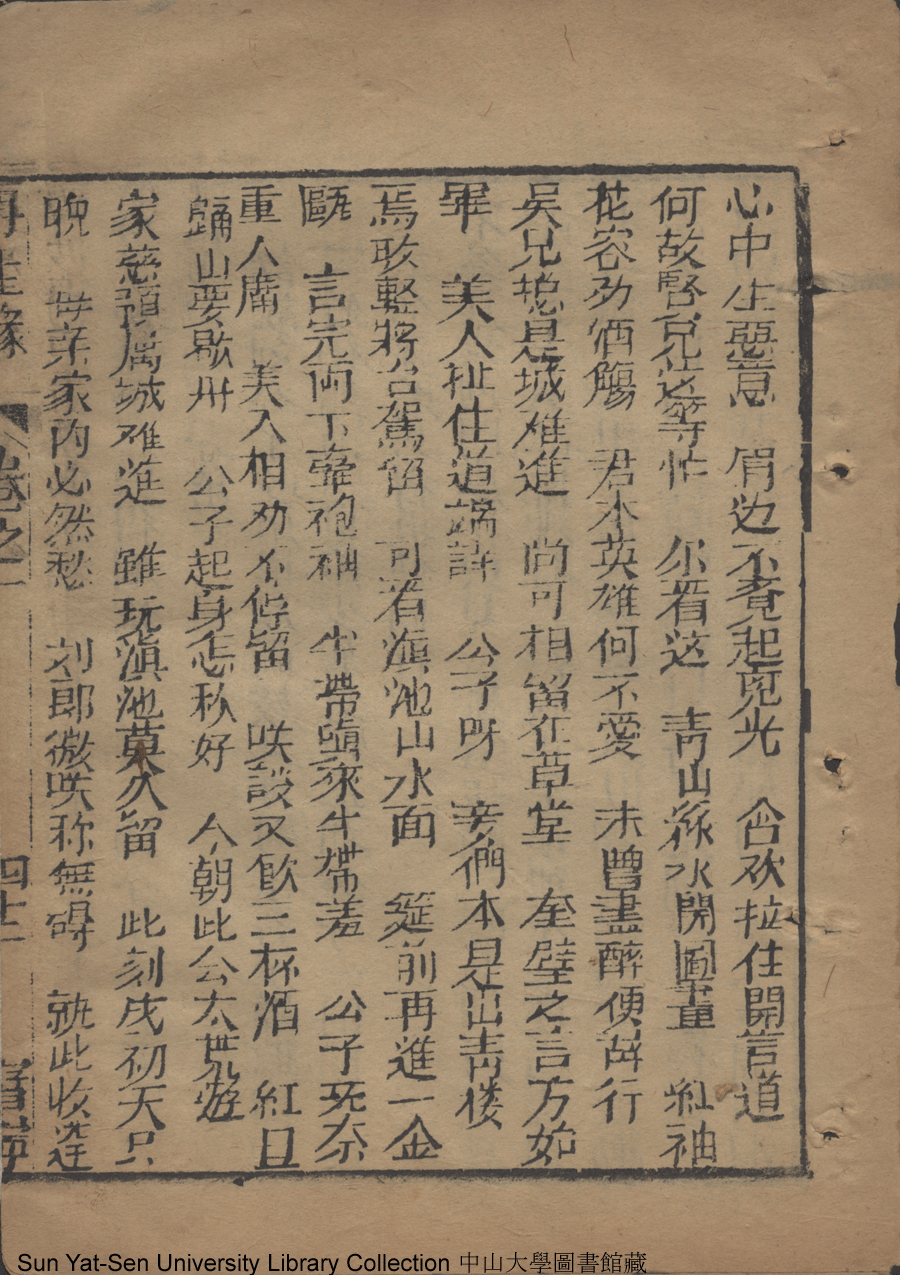 心中生惡意　眉边不覔起兇光　含欢拉住開言道
何故賢兄这等忙　尔看这　青山綠水開圖畫　紅袖
花容劝酒觴　君本英雄何不爱　未曾盡醉便茍行
吴兄搃是城难進　尚可相留在草堂　奎壁之言方如
畢　美人扯住道端詳　公子呀　妾們本是出青楼
焉敢輕將台駕留　可看滇池山水面　筵前再進一金
甌　言完両下牽袍袖　半帶嬌來半帶羞　公子无奈
重入席　美人相劝不停留　咲談又飲三杯酒　紅日
歸山要歇舟　公子起身怎秋好　今朝此公太荒遊
家慈預属城难進　雖玩滇池莫久留　此刻戌初天只
晚　母亲家内必然愁　刘郎微咲称無碍　就此收筵
再生緣　卷之二　四十二
Sun Yat-Sen University Library Collection 中山大學圖書館藏